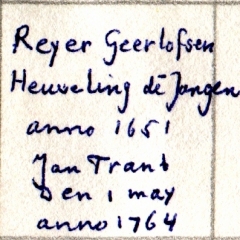 Reyer Geerlofsen
Heuveling de Jongen
anno 1651
Jan Trant
Den 1 may
anno 1764